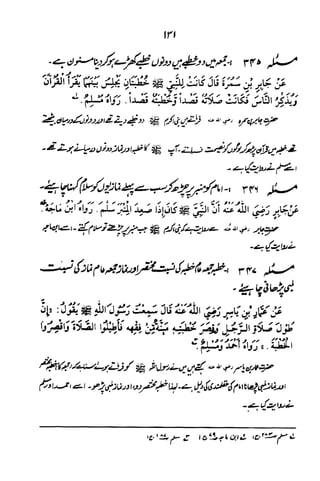 ۱۳۱
مسئلہ ۳۴۵ - ۱ جمعہ میں دو خطبے ہیں دونوں خطبے کھڑے ہو کر دینا مسنون ہے۔
عَنْ جَابِرِ بْنِ سَمُرَةَ قَالَ كَانَتْ لِلنَّبِيِّ ﷺ خُطْبَتَانِ يَجْلِسُ بَيْنَهُمَا يَقْرَأُ الْقُرْآنَ
وَيُذَكِّرُ النَّاسَ فَكَانَتْ صَلَاتُهُ قَصْدًا وَّخُطْبَتُهُ قَصْدًا. رَوَاهُ مُسْلِمٌ. لے
حضرت جابر بن سمرہ رضی اللہ عنہ فرماتے ہیں نبی اکرم ﷺ دو خطبے دیتے تھے اور دونوں کے درمیان بیٹھتے
تھے خطبہ میں قرآن پڑھ کر لوگوں کو نصیحت فرماتے۔ آپ ﷺ کا خطبہ اور نماز دونوں درمیانے ہوتے تھے۔
اسے مسلم نے روایت کیا ہے۔
مسئلہ ۳۴۶ - ۱ امام کو منبر پر چڑھ کر سب سے پہلے نمازیوں کو سلام کہنا چاہیئے۔
عَنْ جَابِرٍ رَضِيَ اللهُ عَنْهُ أَنَّ النَّبِيَّ ﷺ كَانَ إِذَا صَعِدَ الْمِنْبَرَ سَلَّمَ. رَوَاهُ ابْنُ مَاجَةَ.
حضرت جابر رضی اللہ عنہ سے روایت ہے کہ نبی اکرم ﷺ جب منبر پر چڑھتے تو سلام کہتے۔ اسے ابن ماجہ
نے روایت کیا ہے۔
مسئلہ ۳۴۷ - ۱ خطبہ جمعہ عام خطبہ کی نسبت مختصر اور نماز جمعہ عام نماز کی نسبت
لمبی پڑھانی چاہیئے۔
عَنْ عَمَّارِ بْنِ يَاسِرٍ رَضِيَ اللهُ عَنْهُ قَالَ سَمِعْتُ رَسُولَ اللهِ ﷺ يَقُولُ: «إِنَّ
طُولَ صَلَاةِ الرَّجُلِ وَقِصَرَ خُطْبَتِهِ مَئِنَّةٌ مِّنْ فِقْهِهِ فَأَطِيلُوا الصَّلَاةَ وَاقْصُرُوا
الْخُطْبَةَ. » رَوَاهُ أَحْمَدُ وَمُسْلِمٌ.
حضرت عمار بن یاسر رضی اللہ عنہ کہتے ہیں میں نے رسول اللہ ﷺ کو فرماتے ہوئے سنا ہے کہ خطبہ مختصر
اور نماز لمبی پڑھانا امام کی عقلمندی کی دلیل ہے۔ لہذا خطبہ مختصر دو اور نماز لمبی پڑھو۔ اسے احمد اور مسلم
نے روایت کیا ہے۔